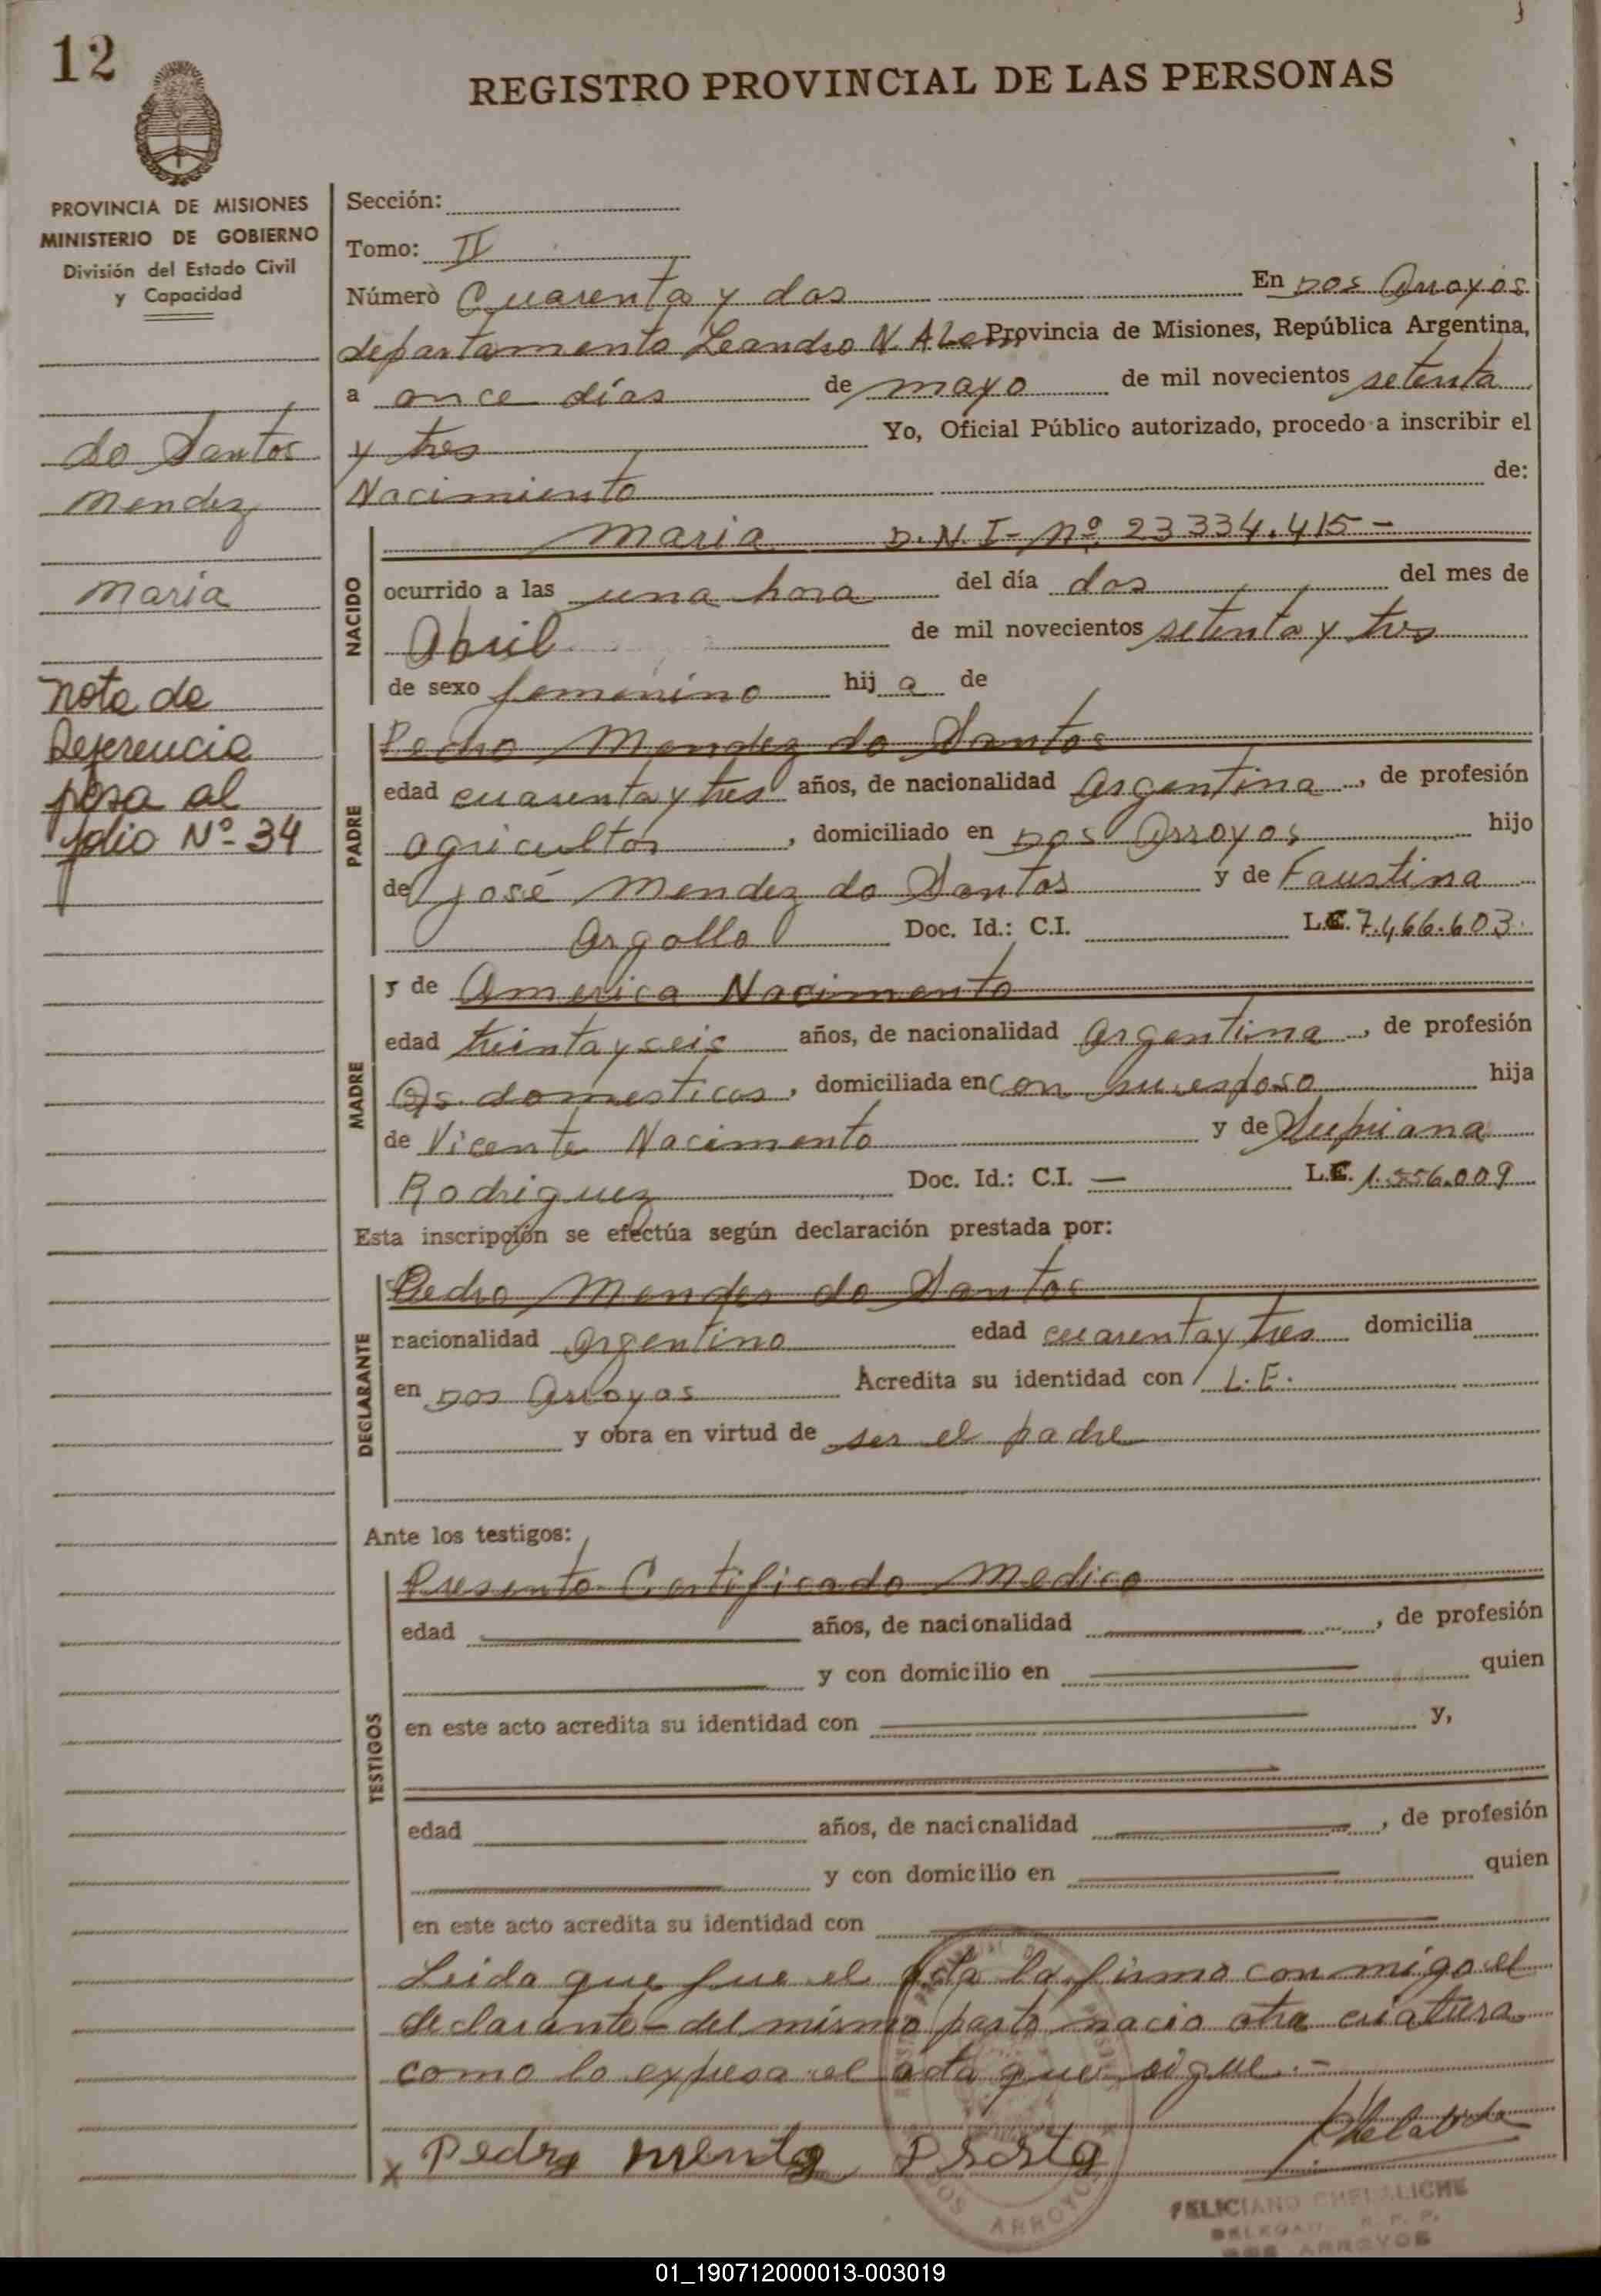 12
REGISTRO PROVINCIAL DE LAS PERSONAS
PROVINCIA DE MISIONES
MINISTERIO DE GOBIERNO
División del Estado Civil
y Capacidad
do Santos
Mendez
Maria
Nota de
Referencia
pasa al
folio Nº 34
Sección:
Tomo: II
Número Cuarenta y dos En Dos Arroyos
departamento Leandro N. Alem Provincia de Misiones, República Argentina,
a once días de mayo de mil novecientos setenta
y tres Yo, Oficial Público autorizado, procedo a inscribir el
Nacimiento de:
NACIDO
Maria D.N.I- Nº 23334.415-
ocurrido a las una hora del día dos del mes de
Abril de mil novecientos setenta y tres
de sexo femenino hij a de
PADRE
Pedro Mendez do Santos
edad cuarenta y tres años, de nacionalidad Argentina, de profesión
agricultor, domiciliado en Dos Arroyos hijo
de José Mendez do Santos y de Faustina
Argollo Doc. Id.: C.I. L.E. 7.466.603.
MADRE
y de America Nacimento
edad treinta y seis años, de nacionalidad Argentina, de profesión
Qs. domesticos, domiciliada en con su esposo hija
de Vicente Nacimento y de
Rodriguez Doc. Id.: C.I. — L.E. 1.556.009
Esta inscripción se efectúa según declaración prestada por:
DECLARANTE
Pedro Mendes do Santos
nacionalidad Argentino edad cuarenta y tres domicilia
en Dos Arroyos Acredita su identidad con L.E.
y obra en virtud de ser el padre
Ante los testigos:
TESTIGOS
Presento Certificado Medico
edad años, de nacionalidad , de profesión
y con domicilio en quien
en este acto acredita su identidad con y,
edad años, de nacionalidad , de profesión
y con domicilio en quien
en este acto acredita su identidad con
Leida que fue el acta la firma con migo el
declarante- del mismo parto nacio otra criatura
como lo expresa el acta que sigue.-
x Pedro
DOS ARROYOS
FELICIANO CHELALICHE
DELEGADO R. P. P.
DOS ARROYOS
01_190712000013-003019